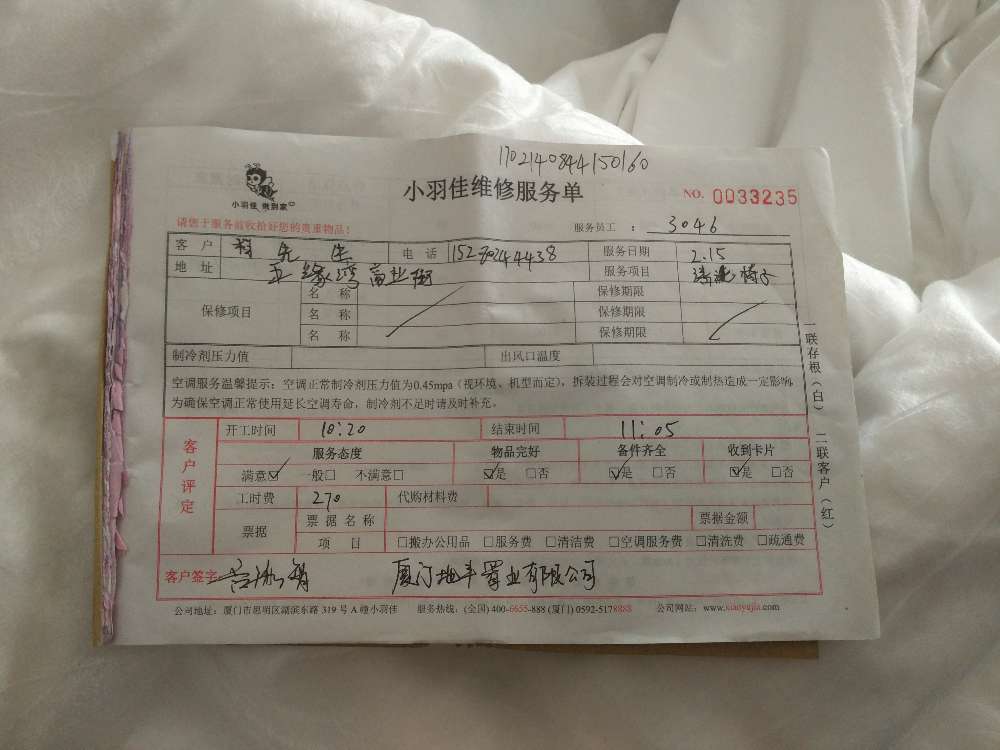 1702140844150160
小羽佳 做到家
小羽佳维修服务单
NO. 0033235
请您于服务前收拾好您的贵重物品!
服务员工 : 3046
客 户 先生 电 话 服务日期 2.15
地 址 五缘湾商业街 服务项目 清洗椅子
保修项目 名 称 保修期限
名 称 保修期限
名 称 保修期限
制冷剂压力值 出风口温度
空调服务温馨提示:空调正常制冷剂压力值为0.45mpa(视环境、机型而定),拆装过程会对空调制冷或制热造成一定影响,
为确保空调正常使用延长空调寿命,制冷剂不足时请及时补充。
客户评定
开工时间 10:20 结束时间 11:05
服务态度 物品完好 备件齐全 收到卡片
满意☑ 一般□ 不满意□ ☑是 □否 ☑是 □否 ☑是 □否
工时费 270 代购材料费
票据 票据名称 票据金额
项 目 □搬办公用品 □服务费 □清洁费 □空调服务费 □清洗费 □疏通费
客户签字 厦门地丰置业有限公司
公司地址:厦门市思明区湖滨东路 319 号 A 幢小羽佳 服务热线:(全国) 400-6655-888 (厦门) 0592-5178888 公司网站:www.xiaoyujia.com
一联存根(白) 二联客户(红)